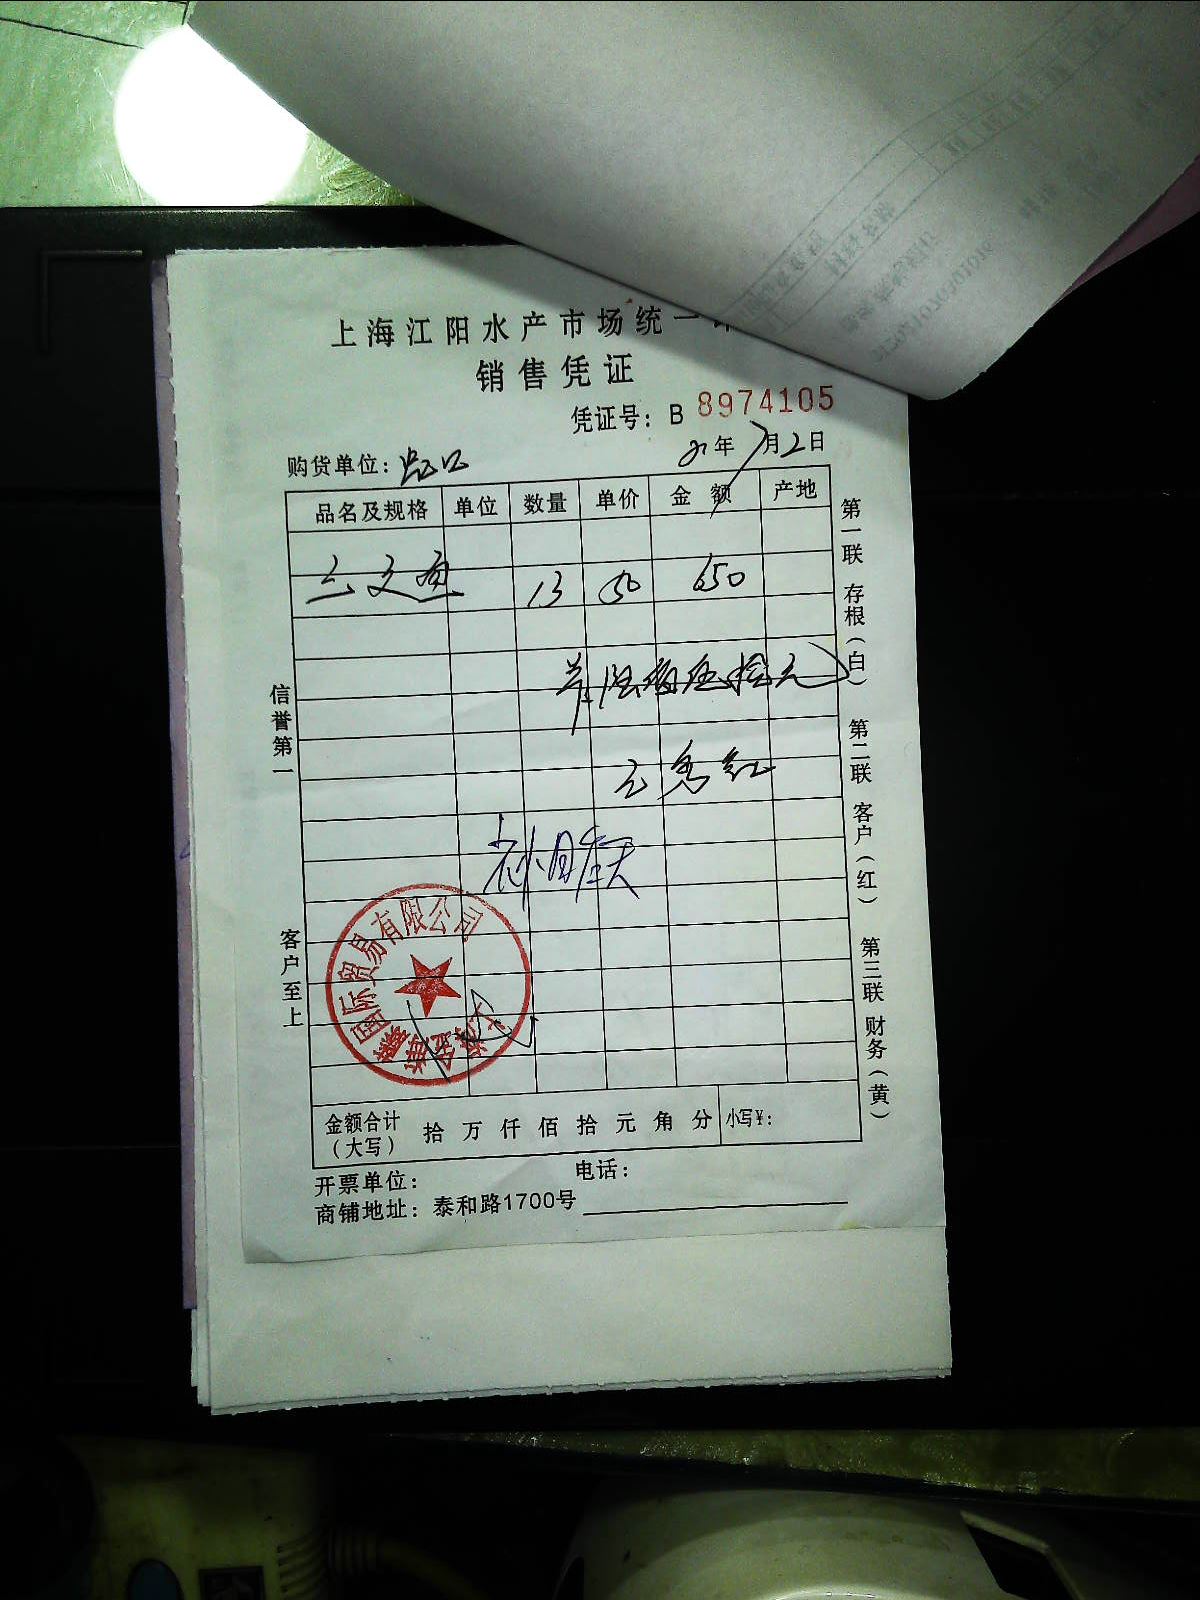 上海江阳水产市场统一
销售凭证
凭证号：B 8974105
购货单位： 21年7月2日
品名及规格 单位 数量 单价 金额 产地
三文鱼 13 50 650
共陆佰伍拾元
王秀红
信誉第一
客户至上
第一联 存根（白） 第二联 客户（红） 第三联 财务（黄）
国际贸易有限公司
金额合计（大写） 拾万仟佰拾元角分 小写¥：
开票单位： 电话：
商铺地址：泰和路1700号